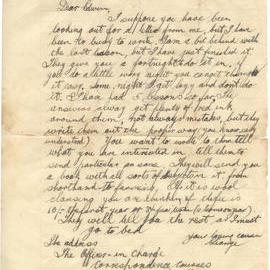 Dear Edwin,
I suppose you have been
looking out for a letter from me, but I have
been too busy to work. I am a bit behind with
the last lesson, but I have just finished it.
They give you a fortnight to do it in, if
you do a little every night you can get through
it easy, some nights I get lazy and don't do
it. I have had lessons so far. The
answers always get plenty of red ink
around them, not always mistakes, but they
write them out the proper way (you know easily
understand). You want to write to them, tell
what you are interested in tell them to
send particulars on same. They will send you
a book with all sorts of in it from
shorthand to farming, it is
clothing you are thinking of
10/- the first year or
They will tell you the rest as I must
go to bed
your loving cousin
George
The address
The Officer in Charge
Correspondence Courses